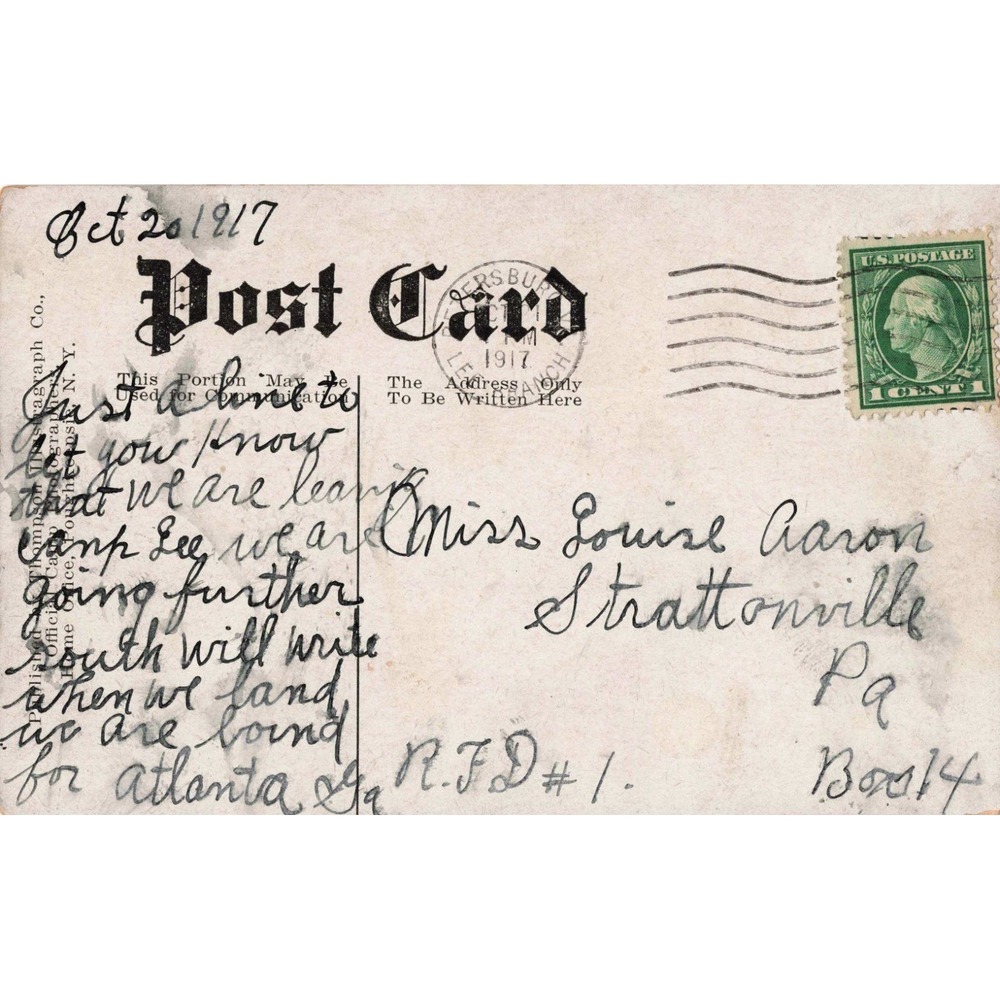 Oct 20 1917
Post Card
This Portion May Be
Used for Communication
The Address Only
To Be Written Here
Just a line to
let you know
that we are leaving
Camp Lee, we are
going further
south will write
when we land
we are bound
for Atlanta Ga
Miss Louise Aaron
Strattonville
Pa
R.F.D # 1.
Box 14
ERSBUR
1917
U.S. POSTAGE
1 CENT 1
Published Thompson Illustragraph Co.,
Official Camp Photographers
Home Office, N. Y.